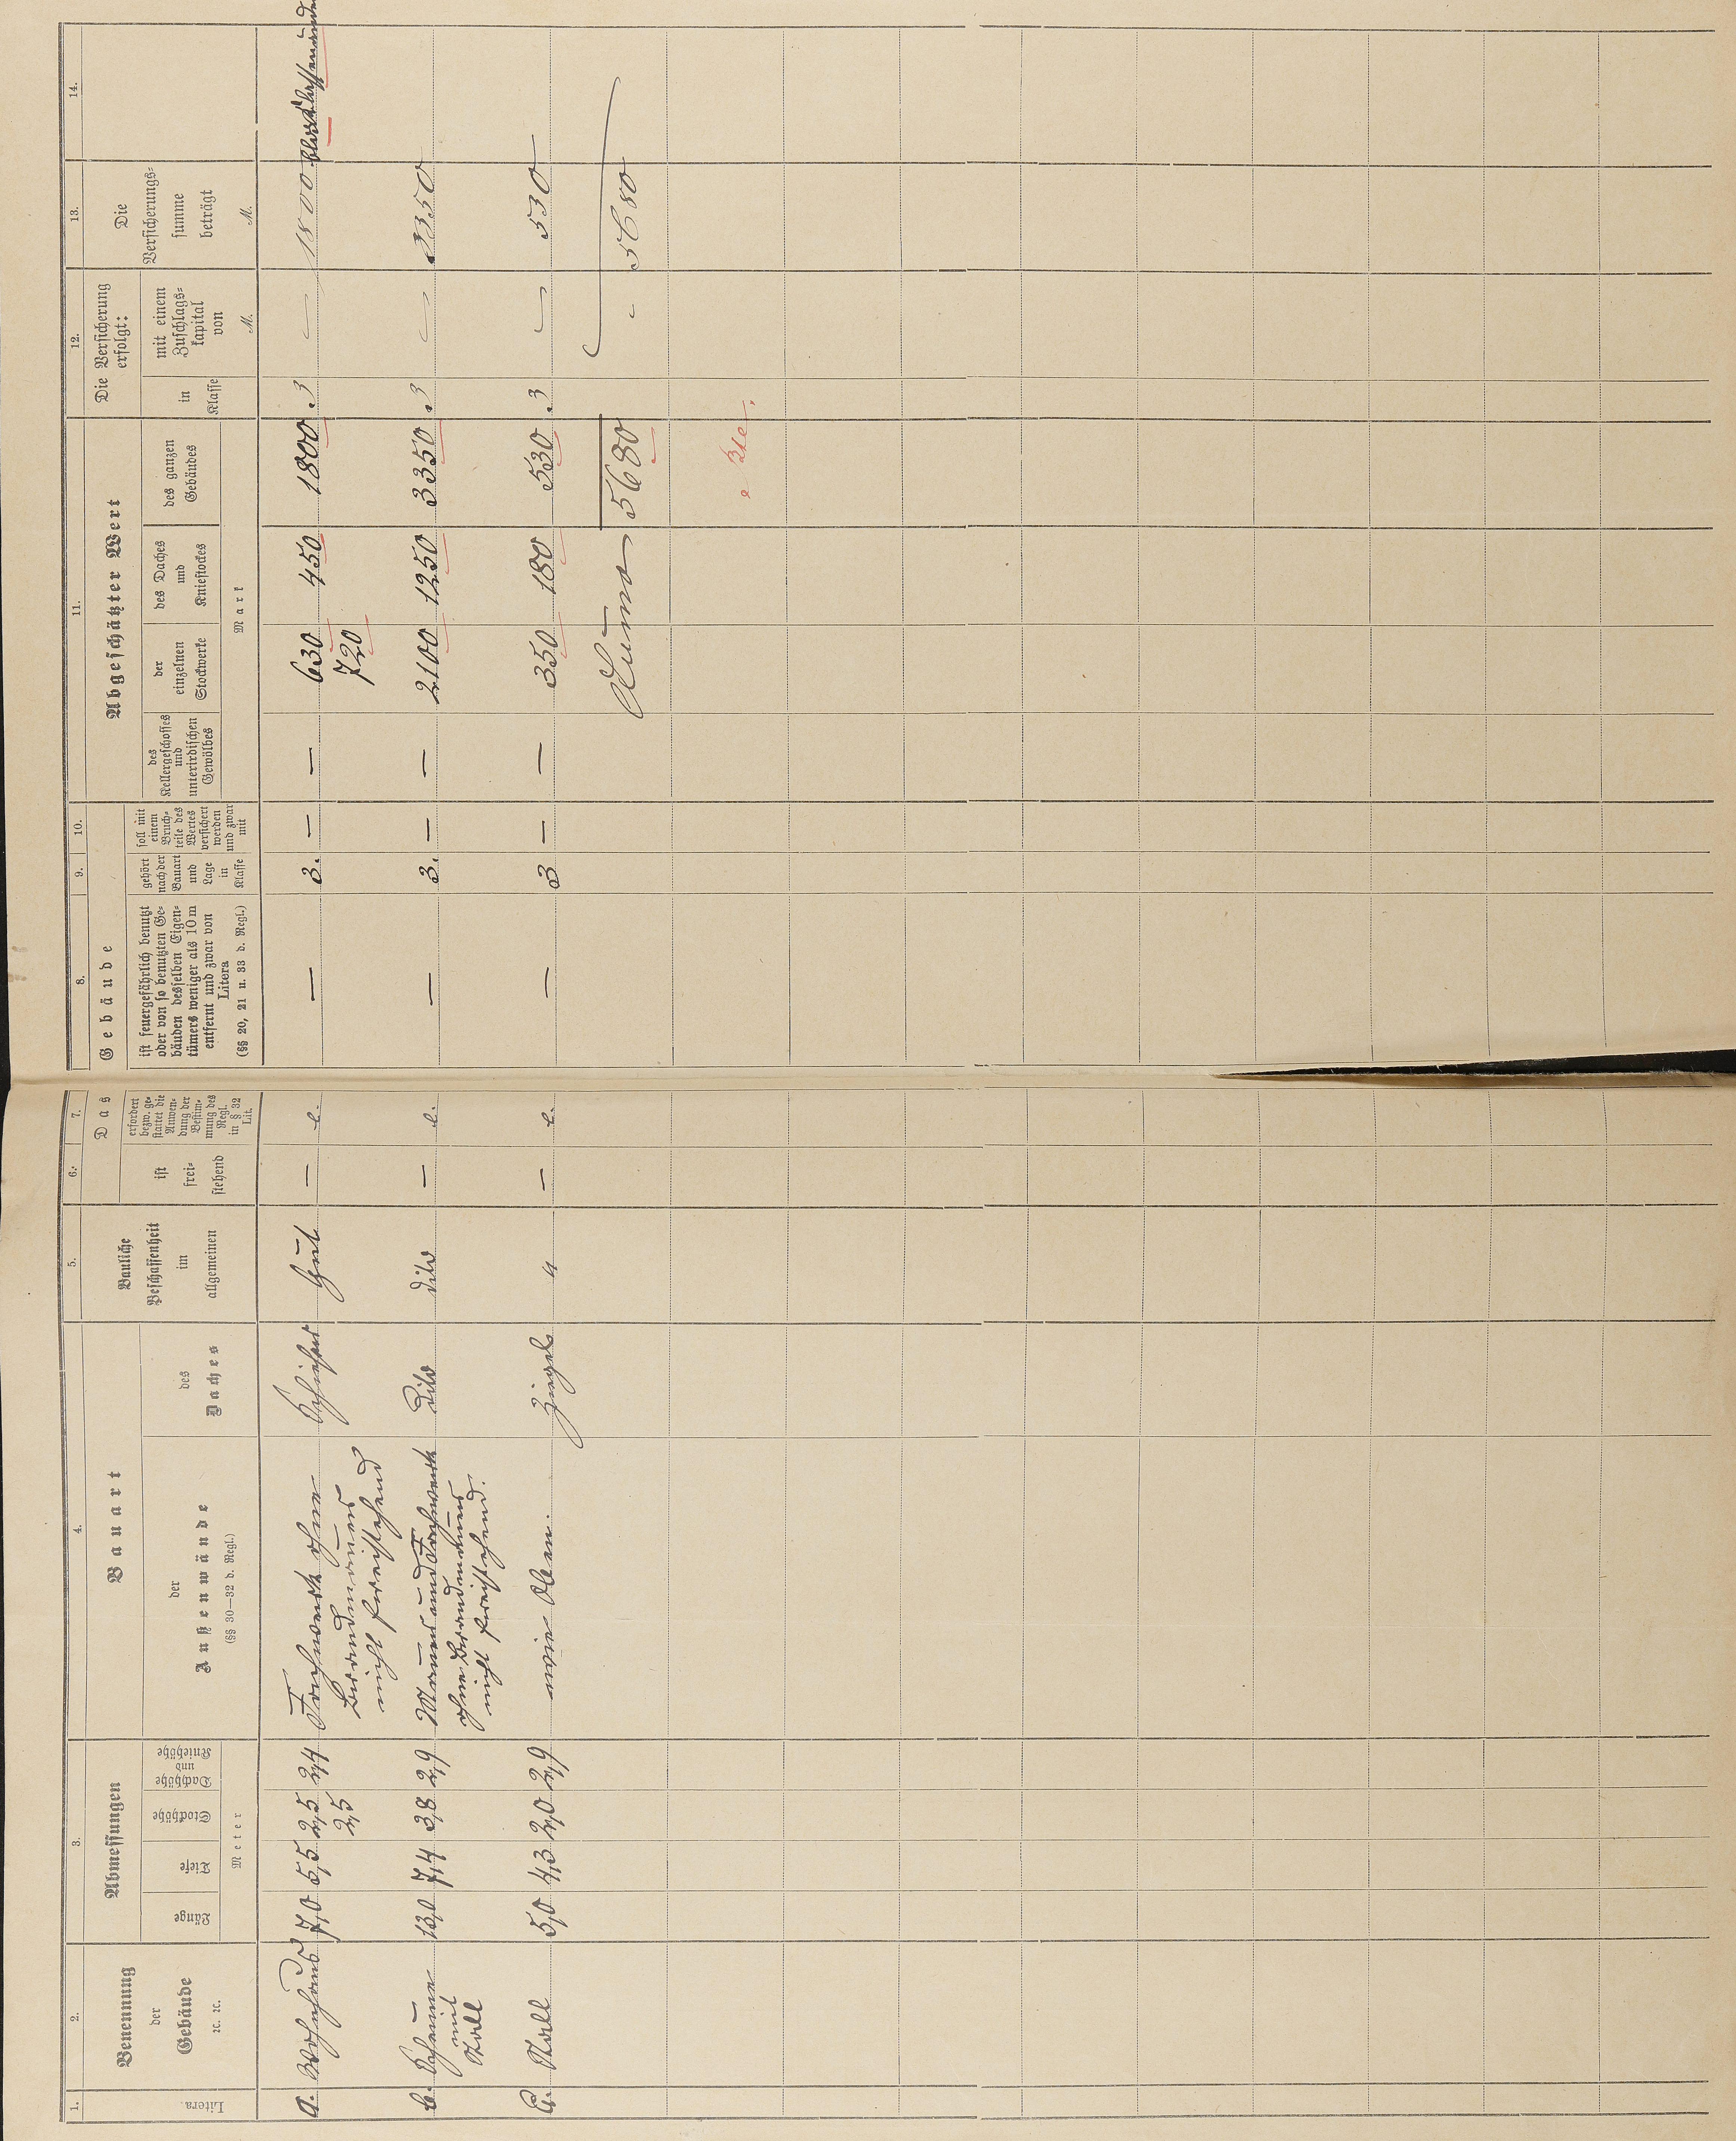 1.
2.
3.
4.
5.
6.
7.
8.
9.
10.
11.
12.
13.
14.
Litera.
Benennung
der
Gebäude
ꝛc. ꝛc.
Abmessungen
Länge
Tiefe
Stockhöhe
Dachhöhe
und
Kniehöhe
Meter
Bauart
der
Außenwände
(§§ 30—32 d. Regl.)
des
Daches
Bauliche
Beschaffenheit
im
allgemeinen
Das Gebäude
ist
frei-
stehend
erfordert
bezw. ge-
stattet die
Anwen-
dung der
Bestim-
mung des
Regl.
in § 32
Lit.
ist feuergefährlich benutzt
oder von so benutzten Ge-
bäuden desselben Eigen-
tümers weniger als 10 m
entfernt und zwar von
Litera
(§§ 20, 21 u. 33 d. Regl.)
gehört
nach der
Bauart
und
Lage
in
Klasse
soll mit
einem
Bruch-
teile des
Wertes
versichert
werden
und zwar
mit
Abgeschätzter Wert
des
Kellergeschosses
und
unterirdischen
Gewölbes
der
einzelnen
Stockwerke
des Daches
und
Kniestockes
des ganzen
Gebäudes
Mark
Die Versicherung
erfolgt:
in
Klasse
mit einem
Zuschlags-
kapital
von
M.
Die
Versicherungs-
summe
beträgt
M.
a. Wohnhaus 7,0 5,5 2,5 2,4 Fachwerk ohne Schiefer Gut — e. — 3. — — 630 450 1800 3 — 1800
2,5 Brandmauer 720
nicht freistehend
b. Scheune 13,0 7,4 3,8 2,9 Mauer und Fachwerk Dito dito — e. — 3. — — 2100 1250 3350 3 — 3350
mit ohne Brandmauer
Stall nicht freistehend.
c. Stall 5,0 4,3 2,0 2,9 wie oben. Ziegel " — e. — 3 — — 350 180 530 3 — 530
Summa 5680 - 5680